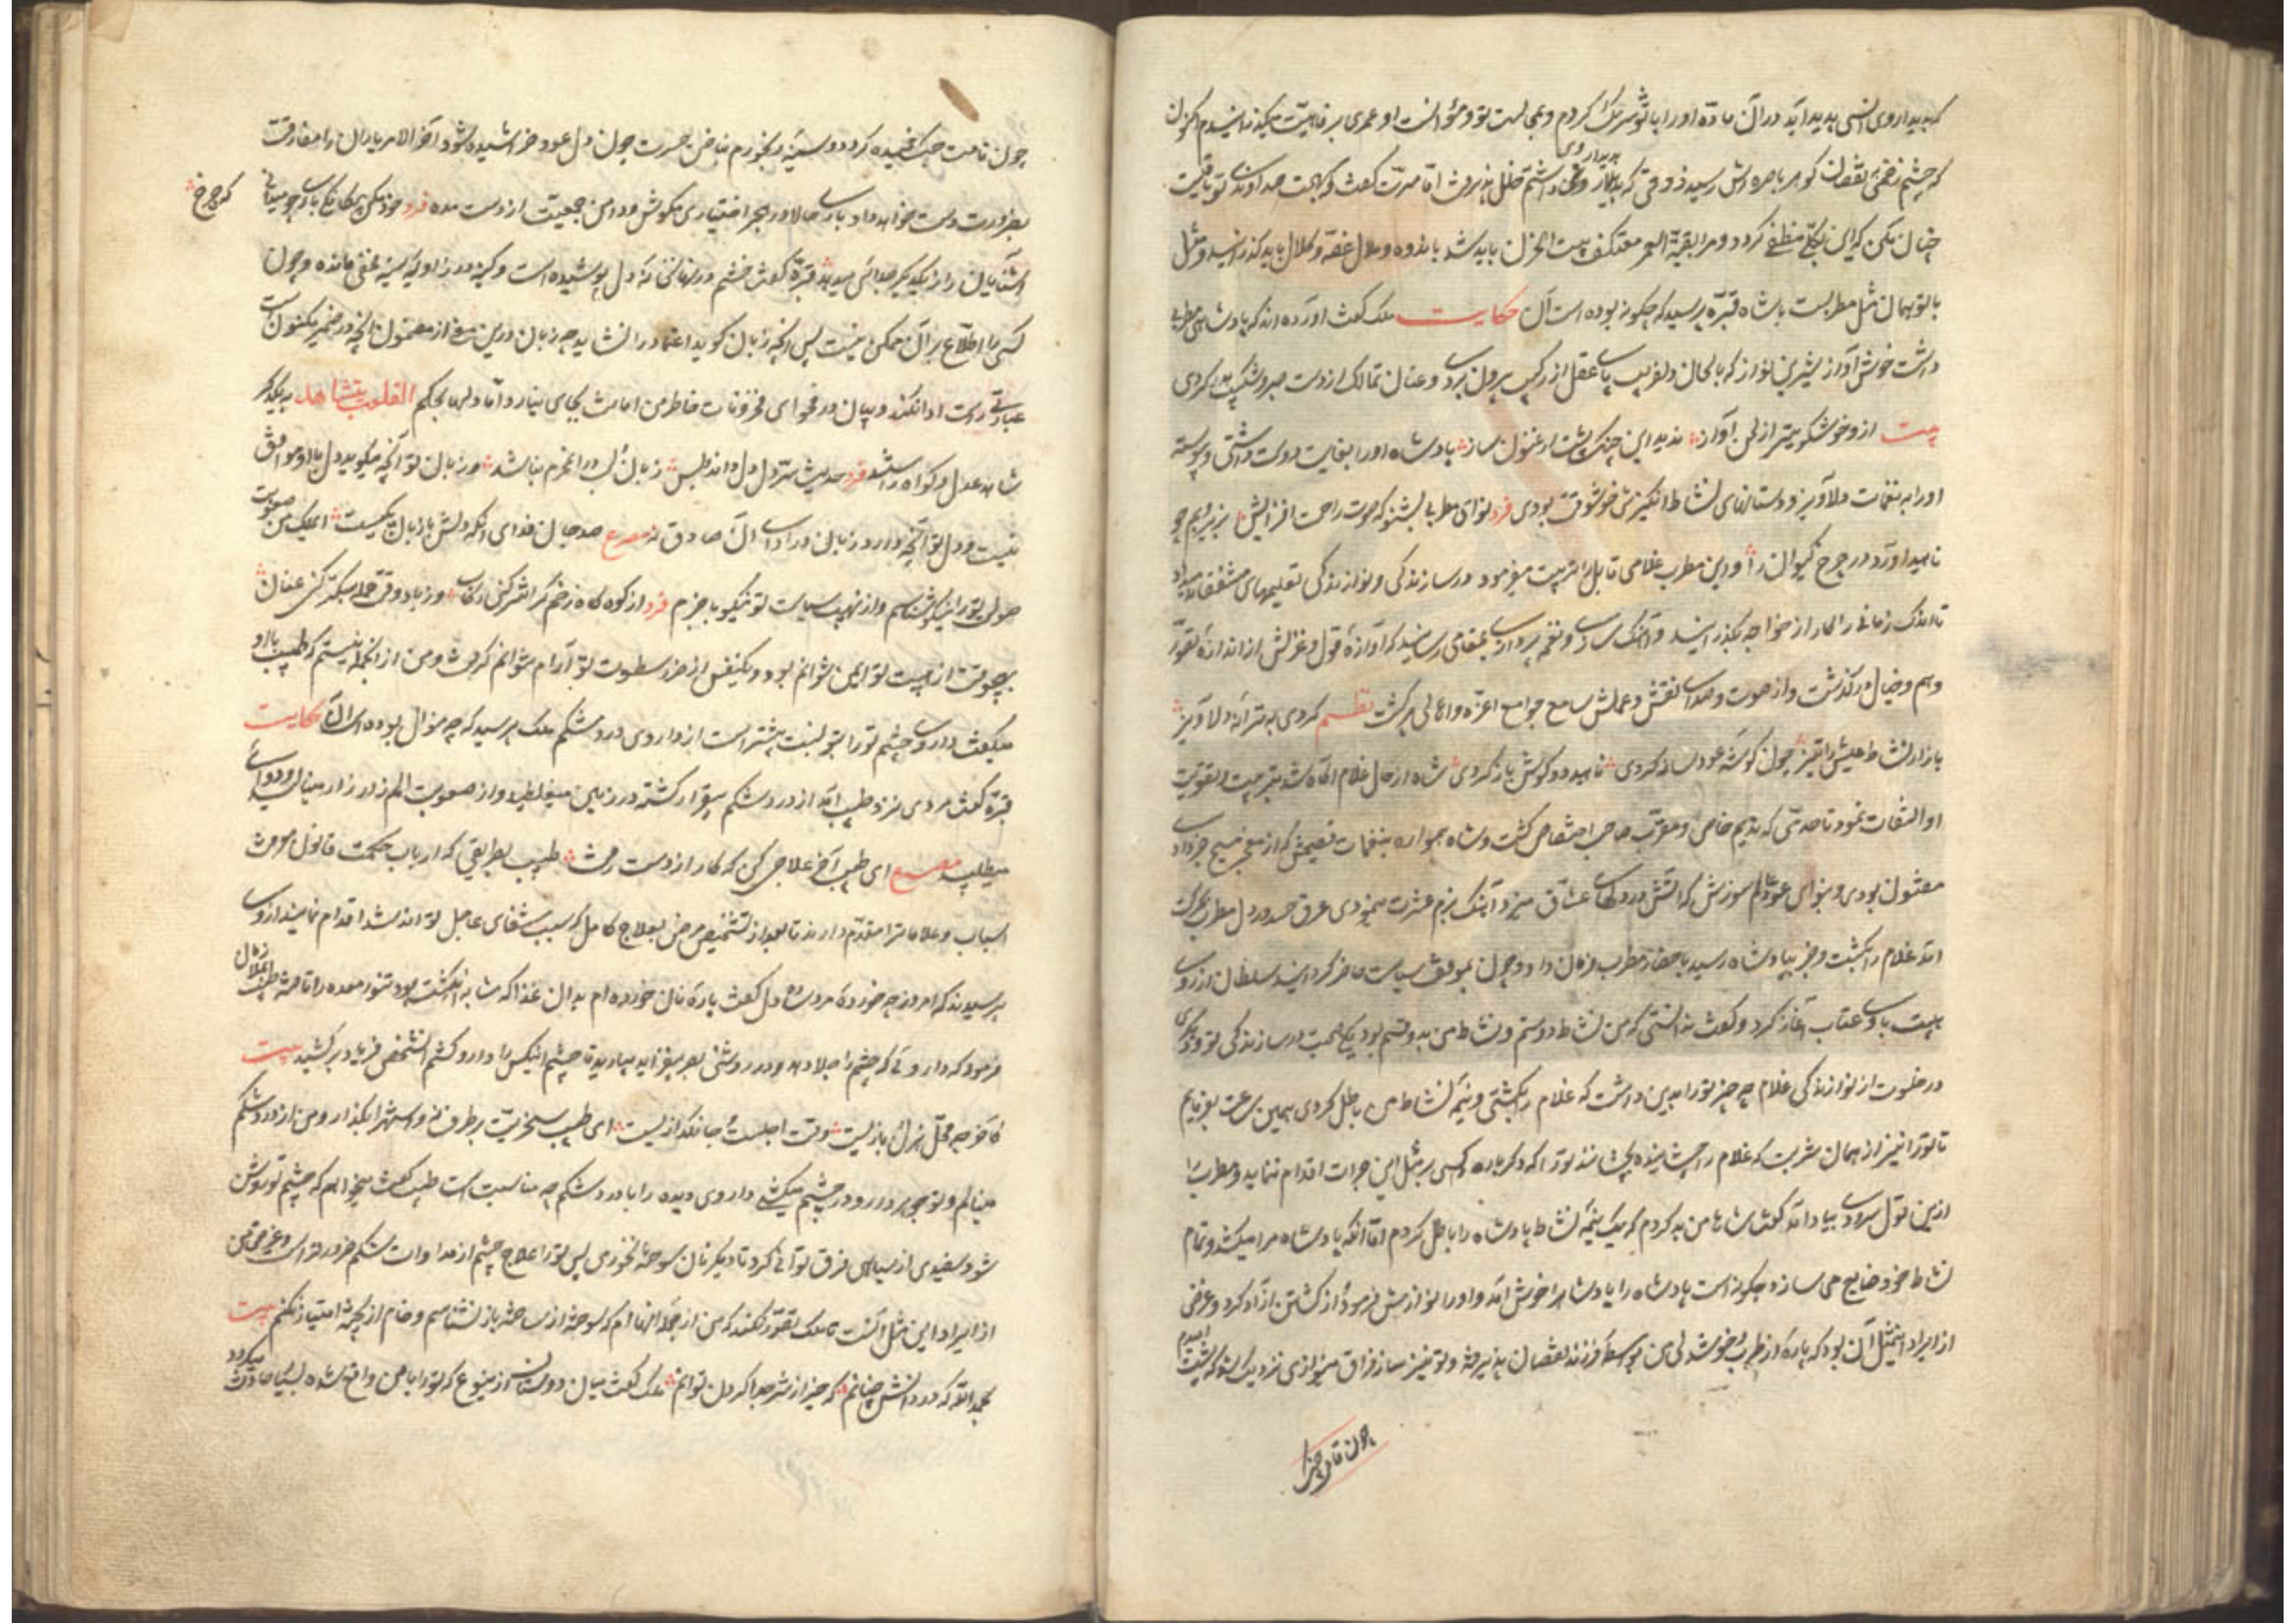 که بدیدار وی انسی پدید آید در آن ماده او را با تو شریک کردم و بمجالست تو و مؤانست او عمری برفاهیت میگذرانیدم اکنون
که چشم زخمی بنقصان گوهر باصره‌اش رسید ذوقی که بدیدار وی داشتم خلل پذیرفت اما مسرت گفت و صحبت تو باقیست
خیال مکن که این بکلی منطفی گردد و مرا بقیة العمر معتکف بیت الحزن باید شد باندوه و ملال غصه و کلال باید گذرانید و مثل
با تو همان مثل مطربست با شاه قبره پرسید که چگونه بوده است آن حکایت ملک گفت آورده‌اند که پادشاهی مطربی
داشت خوش آواز شیرین نواز که بالحان دلفریب پای عقل از رکیب بیرون بردی و عنان تمالک از دست صبر و شکیب بدر کردی
بیت از و خوشگوی‌تر از لحن آواز ندید این چنگ پشت ارغنون ساز پادشاه او را بغایت دوست داشتی و پیوسته
او را به نغمات دلاویز و دستانهای نشاط انگیزش خوشوقت بودی فرد نوای مطربی بشنو که صوت راحت افزایش بزیر و بم چو
ناهید آورد در چرخ کیوان را و این مطرب غلامی قابل را تربیت میفرمود در سازندگی و نوازندگی تعلیمهای مشفقانه میداد
تا اندک زمانی را کار از خواجه بگذرانید و آهنگ سازی و نغمه پردازی بمقامی رسانید که آوازهٔ قول و غزلش از اندازهٔ تصور
وهم و خیال درگذشت و از صوت و صدای نقش و عملش مسامع جوامع اعزه و اهالی پر گشت نظم کردی به ترانهٔ دلاویز
بازار نشاط عیش را تیز چون گوشهٔ عود ساز کردی ناهید دو گوش باز کردی شاه از حال غلام آگاه شد بتربیت و تقویت
او التفات نمود تا حدی که ندیم خاص و مقرب صاحب اختصاص گشت و شاه همواره بنغمات فصیحش که از معجز مسیح خبر دادی
مفتون بودی و بنوای عود عالم سوزش که آتش در دلهای عشاق میزد آهنگ بزم عشرت مینمودی عرق حسد در دل مطرب بحرکت
آمد غلام را بکشت و خبر بپادشاه رسید باحضار مطرب فرمان داد و چون بموقف سیاست حاضر گردانید سلطان از روی
هیبت با وی عتاب آغاز کرد و گفت ندانستی که من نشاط دوستم و نشاط من بدو قسم بود یکی در صحبت در سازندگی تو و دیگری
در خلوت از نوازندگی غلام چه چیز تو را بدین داشت که غلام را بکشتی و نیمهٔ نشاط من باطل کردی همین ساعت بفرمایم
تا تو را نیز از همان شربت که غلام را چشانیده بچشانند تا دگر باره کسی بر مثل این جرات اقدام ننماید و مطرب را
ازین قول سرودی بیاد آمد گفت شاها من بد کردم که یک نیمهٔ نشاط پادشاه را باطل کردم اما آنکه پادشاه مرا میکشد و تمام
نشاط خود ضایع می سازد چگونه است پادشاه را پادشاه را خوش آمد و او را نوازش فرمود از کشتن آزاد کرد و غرض
از ایراد این مثل آن بود که پاره از طرب و خوشدلی من بواسطهٔ فرزند نقصان پذیرفته و تو نیز ساز فراق مینوازی نزدیک شد که پشت امیدم
چون قامت چنگ
چون قامت چنگ خمیده گردد و سینهٔ رنجورم بناخن حسرت چون دل عود خراشیده شود آخر الامر یاران را مفارقت
بضرورت دست خواهد داد باری حالا در هجر اختیاری مکوش و دامن جمعیت از دست مده فرد خود مکن بیگانگی باری چو میدانی
که چرخ
آشنایان را ز یکدیگر جدائی میدهد قبره گفت خشم در نهانخانهٔ دل پوشیده است و کینه در زاویهٔ سینه مخفی مانده و چون
کسی را اطلاع بر آن ممکن نیست پس آنچه زبان گوید اعتماد را نشاید چه زبان درین معنی از مضمون آنچه در ضمیر مکنونست
عبارتی راست ادا نکند و بیان در فحوای مخزونات خاطر من امانت بجای نیارد و اما دلها بحکم القلوب تتشاهد به یکدیگر
شاهد عدل و گواه راستند فرد حدیث سر دل دل داند و بس زبان و لب در آن محرم نباشد و زبان تو آنچه میگوید دل با او موافق
نیست و دل تو آنچه دارد زبان در ادای آن صادق نه مصرع صد جان فدای آنکه دلش با زبان یکیست ای ملک من صعوبت
صولت تو را نیکو شناسم و از نهیب سیاست تو نیکو باخبرم فرد از کوه گاه زخم گران‌تر کنی رکاب وز باد وقت حمله سبکتر کنی عنان
بهیچوقت از هیبت تو ایمن نتوانم بود و یکنفس از حذر سطوت تو آرام نتوانم گرفت و من از آنجمله نیستم که طبیب با او
میگفت داروی چشم تو را بتو نسبت بیشتر است از داروی درد شکم ملک پرسید که چه منوال بوده است آن حکایت
قبره گفت مردی نزد طبیب آمد از درد شکم بیقرار گشته در زمین میغلطید و از صعوبت الم زار زار مینالید و دوائی
میطلبید مصرع ای طبیب آخر علاجی کن که کار از دست رفت طبیب بطریقی که ارباب حکمت قانون معرفت
اسباب و علامات را مقدم دارند تا بعد از تشخیص مرض بعلاج کامل که سبب شفای عاجل تواند شد اقدام نمایند از وی
پرسید که امروز چه خوردهٔ مرد ساده دل گفت پاره نان خورده‌ام بدان غذا که مشابه انگشت بود تنور معده را تافته طبیب غلام را
فرمود که داروئی که چشم را جلا دهد و در روشنی بصر بیفزاید بیارید تا چشم اینکس را دارو کشم آن شخص فریاد برکشید بیت
کاخر چه محل هزل و بازیست وقت اجلست و جانگدازیست ای طبیب سخریت بر طرف نه و استهزا بگذار و من از درد شکم
مینالم و تو جوهر دارو در چشم میکشی داروی دیده را با درد شکم چه مناسبت است طبیب گفت میخواهم که چشم تو روشن
شود سفیدی از سیاهی فرق توانی کرد تا دیگر نان سوخته نخوری پس تو را علاج چشم از مداوات شکم ضرورتر است و غرض من
از ایراد این مثل آنست تا ملک تصور نکند که من از جمله آنها ام که سوخته از ساخته باز نشناسم و خام از پخته امتیاز نکنم بیت
بحمدالله که در دانش چنانم که خیر از شر جدا کردن توانم ملک گفت میان دوستان ازین نوع که تو را با من واقع شده بسیار حادث میگردد